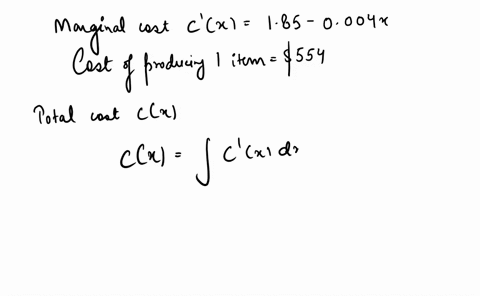 Marginal cost C'(x) = 1.85 - 0.004x
Cost of producing 1 item = $554
Total cost C(x)
C(x) = ∫ C'(x) dx